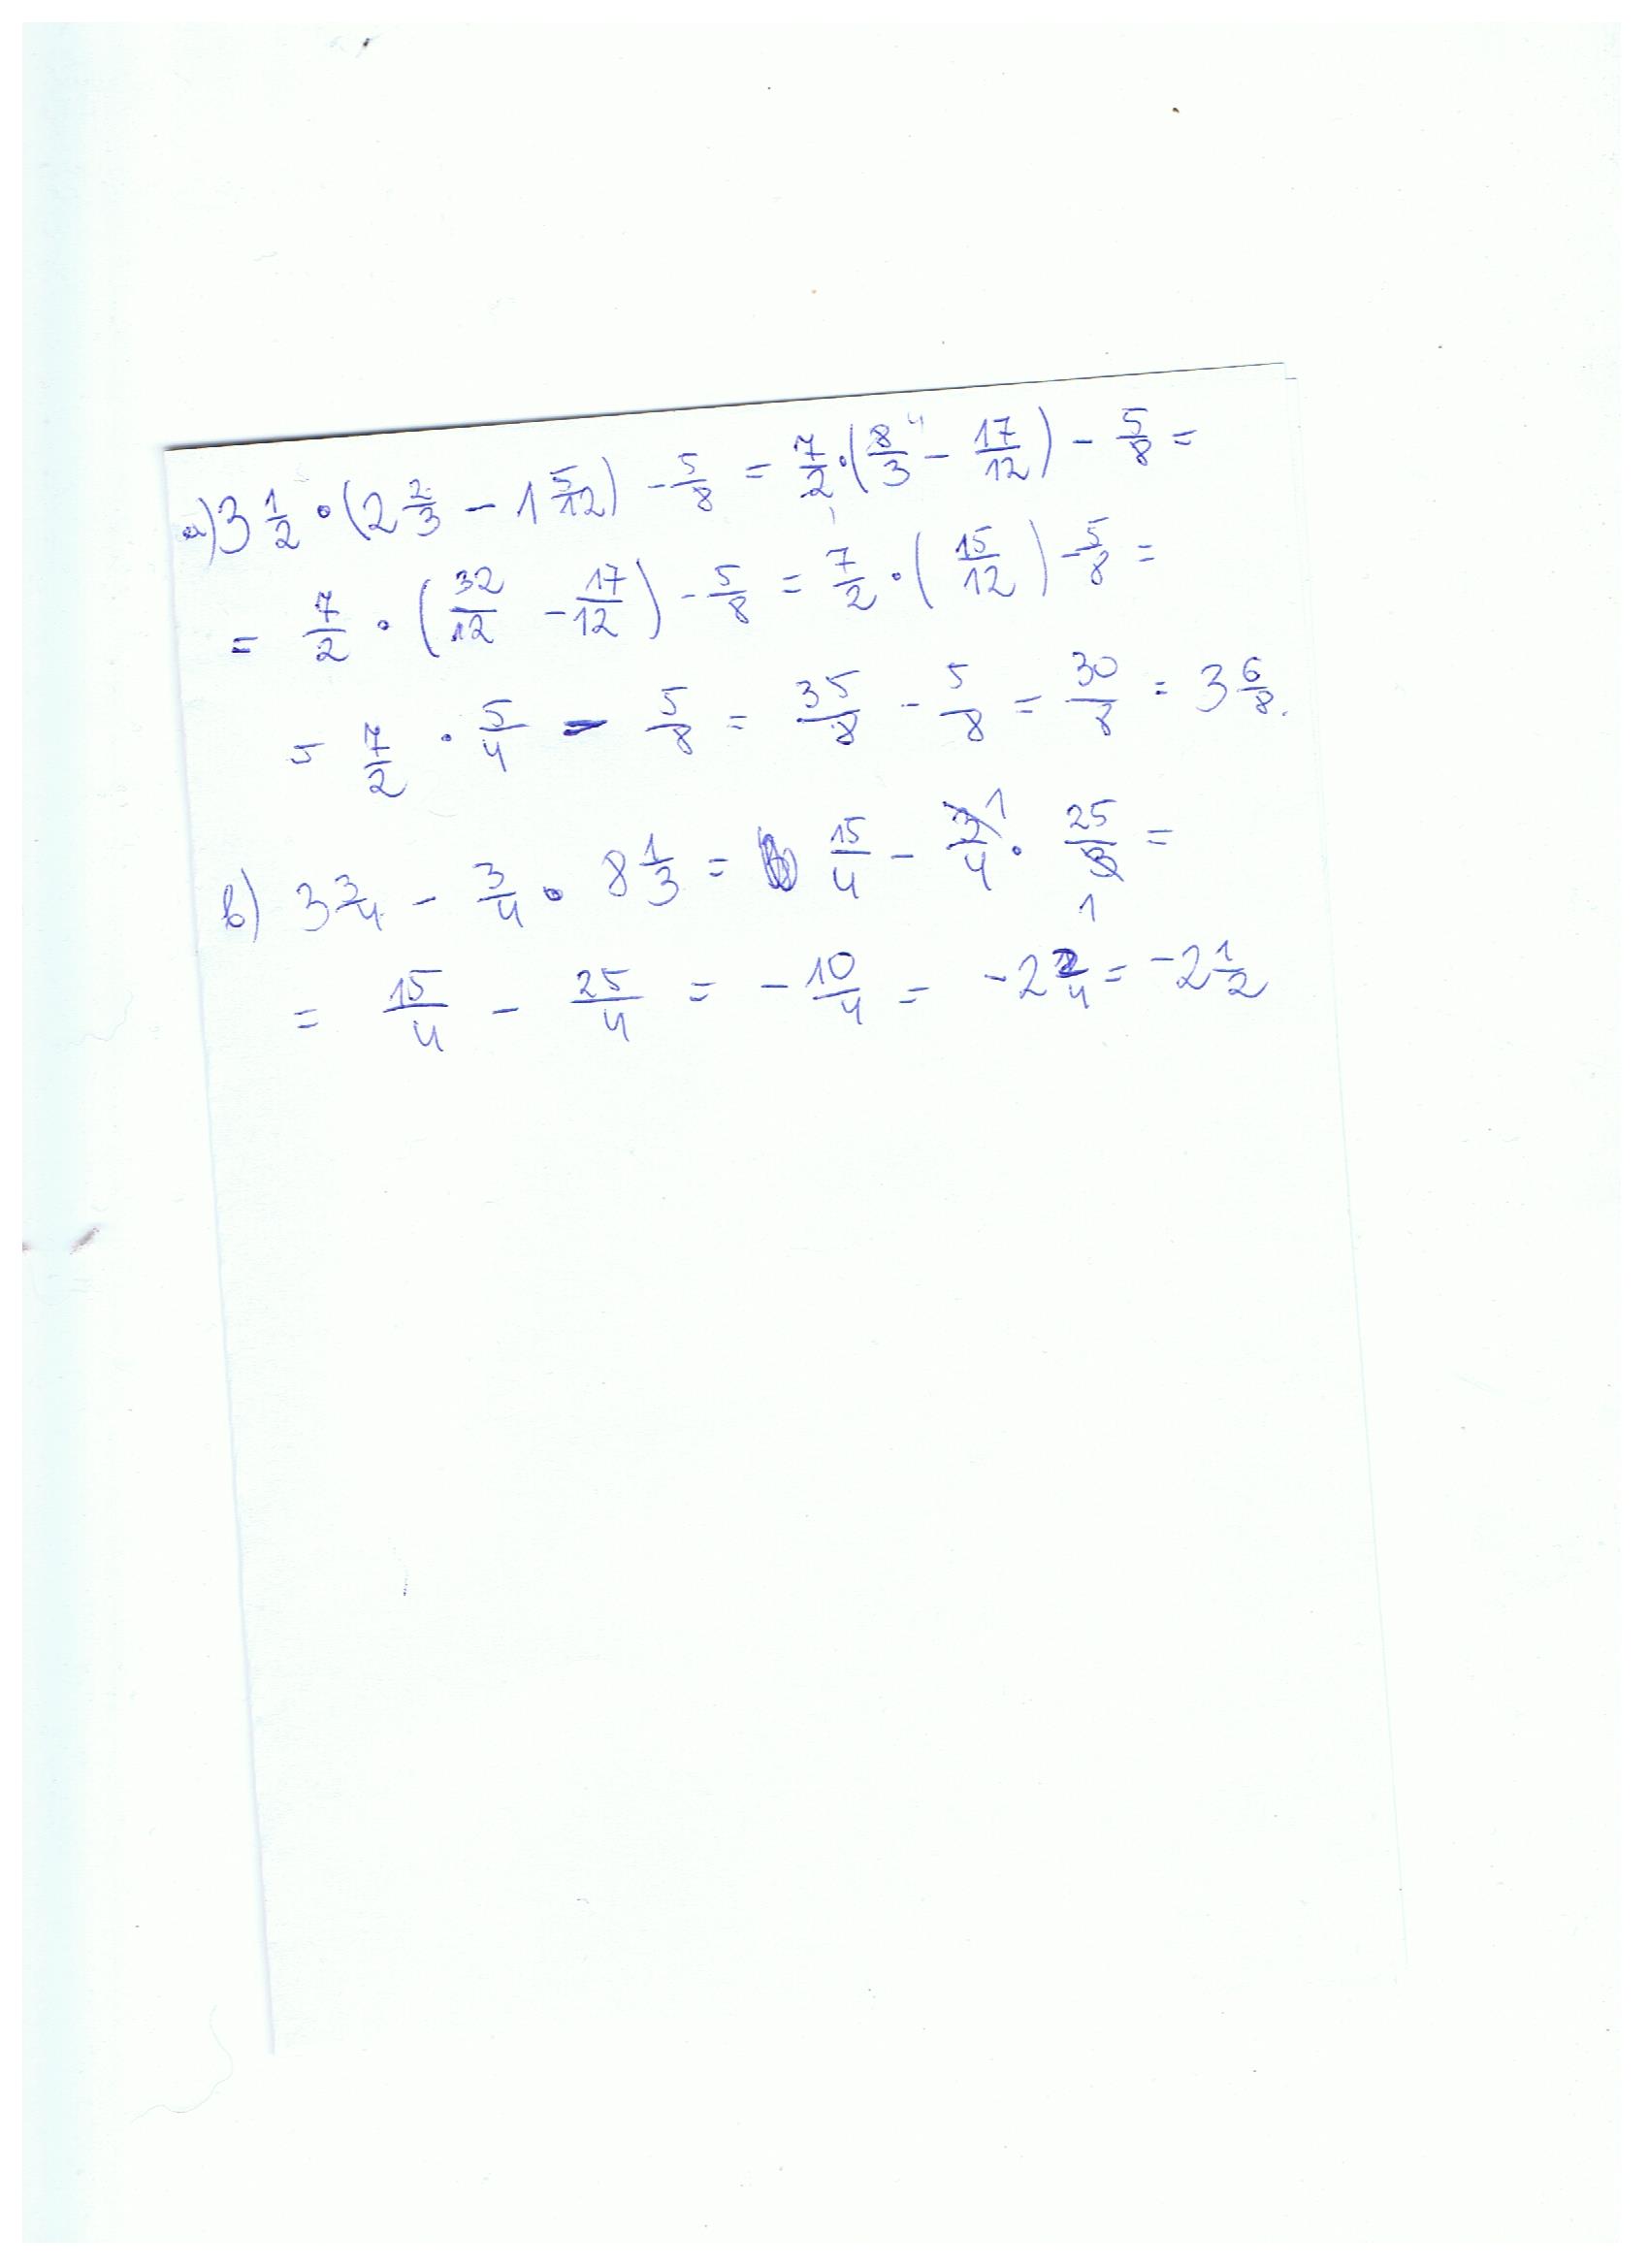 а) 3 1/2 • (2 2/3 - 1 5/12) - 5/8 = 7/2 • (8/3 4 - 17/12) - 5/8 =
= 7/2 • (32/12 - 17/12) - 5/8 = 7/2 • (15/12) - 5/8 =
= 7/2 • 5/4 - 5/8 = 35/8 - 5/8 = 30/8 = 3 6/8.
в) 3 3/4 - 3/4 • 8 1/3 = 15/4 - 3/4 1 • 25/3 =
1
= 15/4 - 25/4 = - 10/4 = - 2 2/4 = - 2 1/2